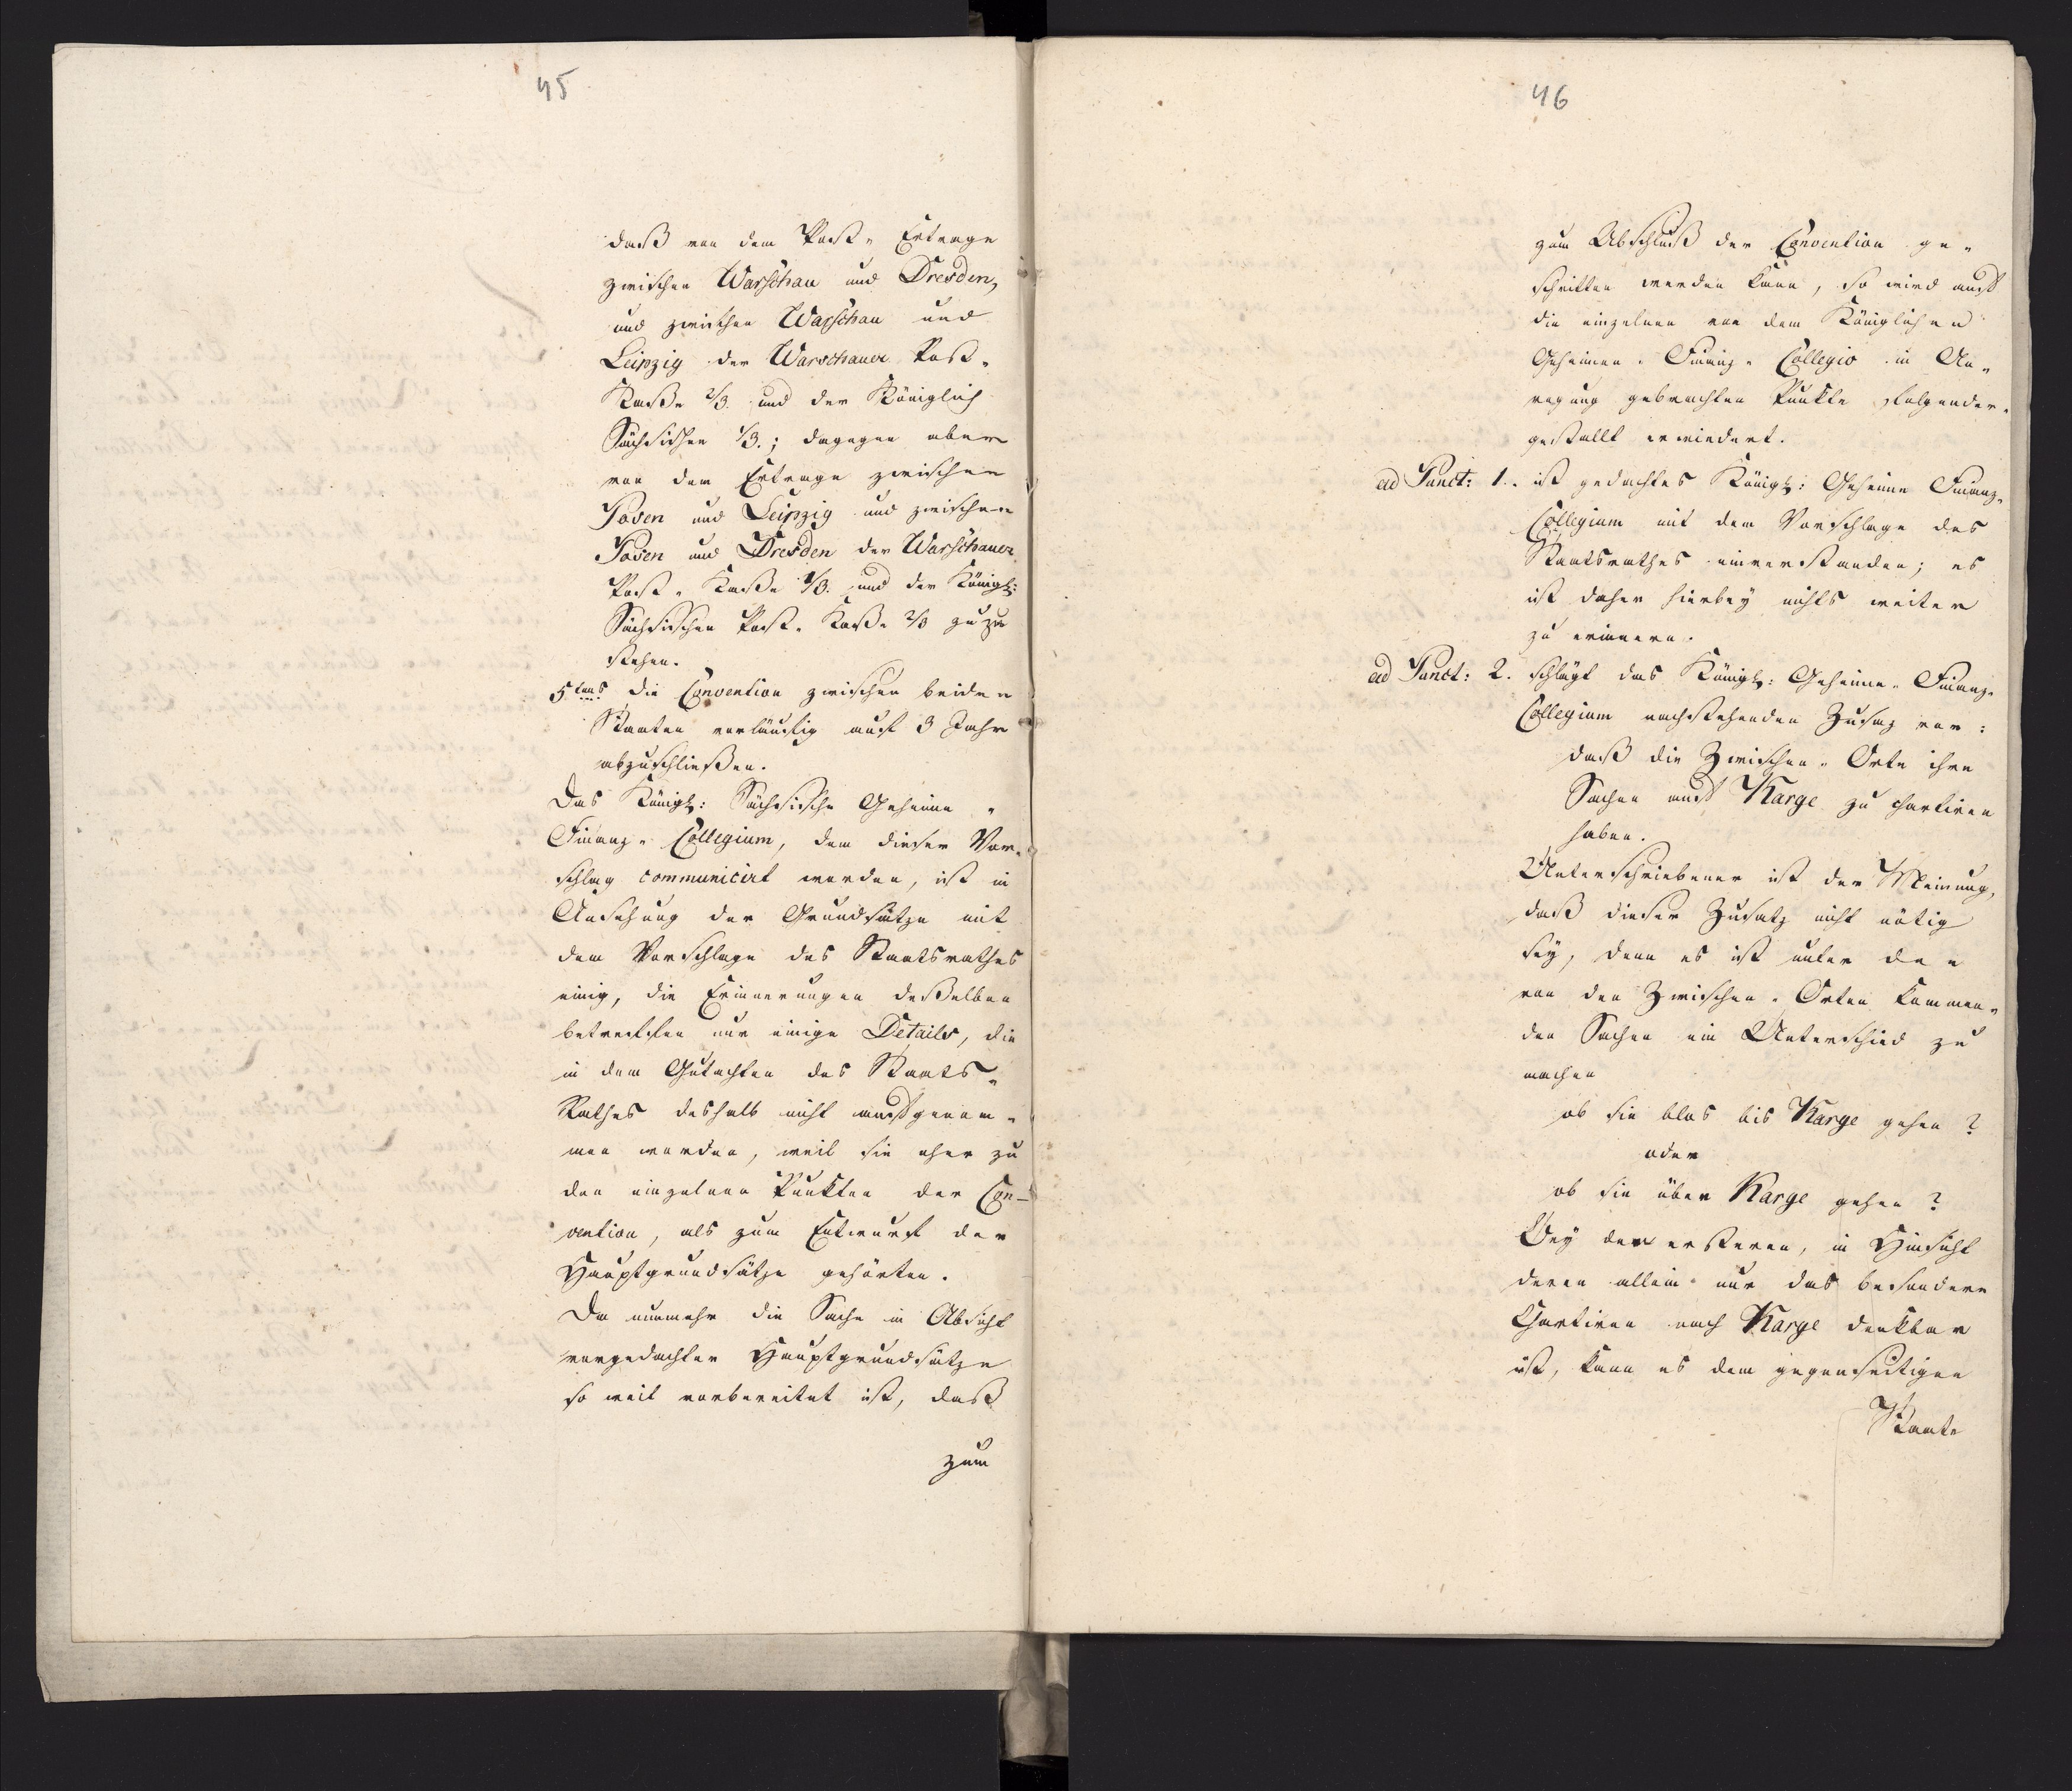 45
daß von dem Post-Ertrage
zwischen Warschau und Dresden,
und zwischen Warschau und
Leipzig der Warschauer Post-
Kaße 2/3. und der Königlich
Sächsischen 1/3.; dagegen aber
von dem Ertrage zwischen
Posen und Leipzig und zwischen
Posen und Dresden der Warschauer
Post-Kaße 1/3. und der Königl:
Sächsischen Post-Kaße 2/3 zuzu
stehen.
5tens die Convention zwischen beiden
Staaten vorläufig auf 3 Jahr
abzuschließen.
Das Königl: Sächsische Geheime-
Finanz-Collegium, dem dieser Vor-
schlag communicirt worden, ist in
Ansehung der Grundsätze mit
dem Vorschlage des Staatsrathes
einig, die Erinnerungen deßelben
betreffen nur einige Details, die
in dem Gutachten des Staats-
Rathes deshalb nicht aufgenom-
men worden, weil sie eher zu
den einzelnen Punkten der Con-
vention, als zum Entwurf der
Hauptgrundsätze gehörten.
Da nunmehr die Sache in Absicht
vorgedachter Hauptgrundsätze
so weit vorbereitet ist, daß
zum
46
zum Abschluß der Convention ge-
schritten werden kann, so wird auf
die einzelnen von dem Königlichen
Geheimen-Finanz-Collegio in An-
regung gebrachten Punkte folgender-
gestallt erwiedert.
ad Punct: 1. ist gedachtes Königl: Geheime Finanz-
Collegium mit dem Vorschlage des
Staatsrathes einverstanden; es
ist daher hierbey nichts weiter
zu erinnern.
ad Punct: 2. schlägt das Königl: Geheime-Finanz-
Collegium nachstehenden Zusaz vor:
daß die Zwischen-Orte ihre
Sachen auf Karge zu chartiren
haben.
Unterschriebener ist der Meinung,
daß dieser Zusatz nicht nötig
sey, denn es ist unter den
von den Zwischen-Orten kommen-
den Sachen ein Unterschied zu
machen
ob sie blos bis Karge gehen?
oder
ob sie über Karge gehen?
Bey den ersteren, in Hinsicht
deren allein nur das besondere
Chartiren nach Karge denkbar
ist, kann es dem gegenseitigen
Staate